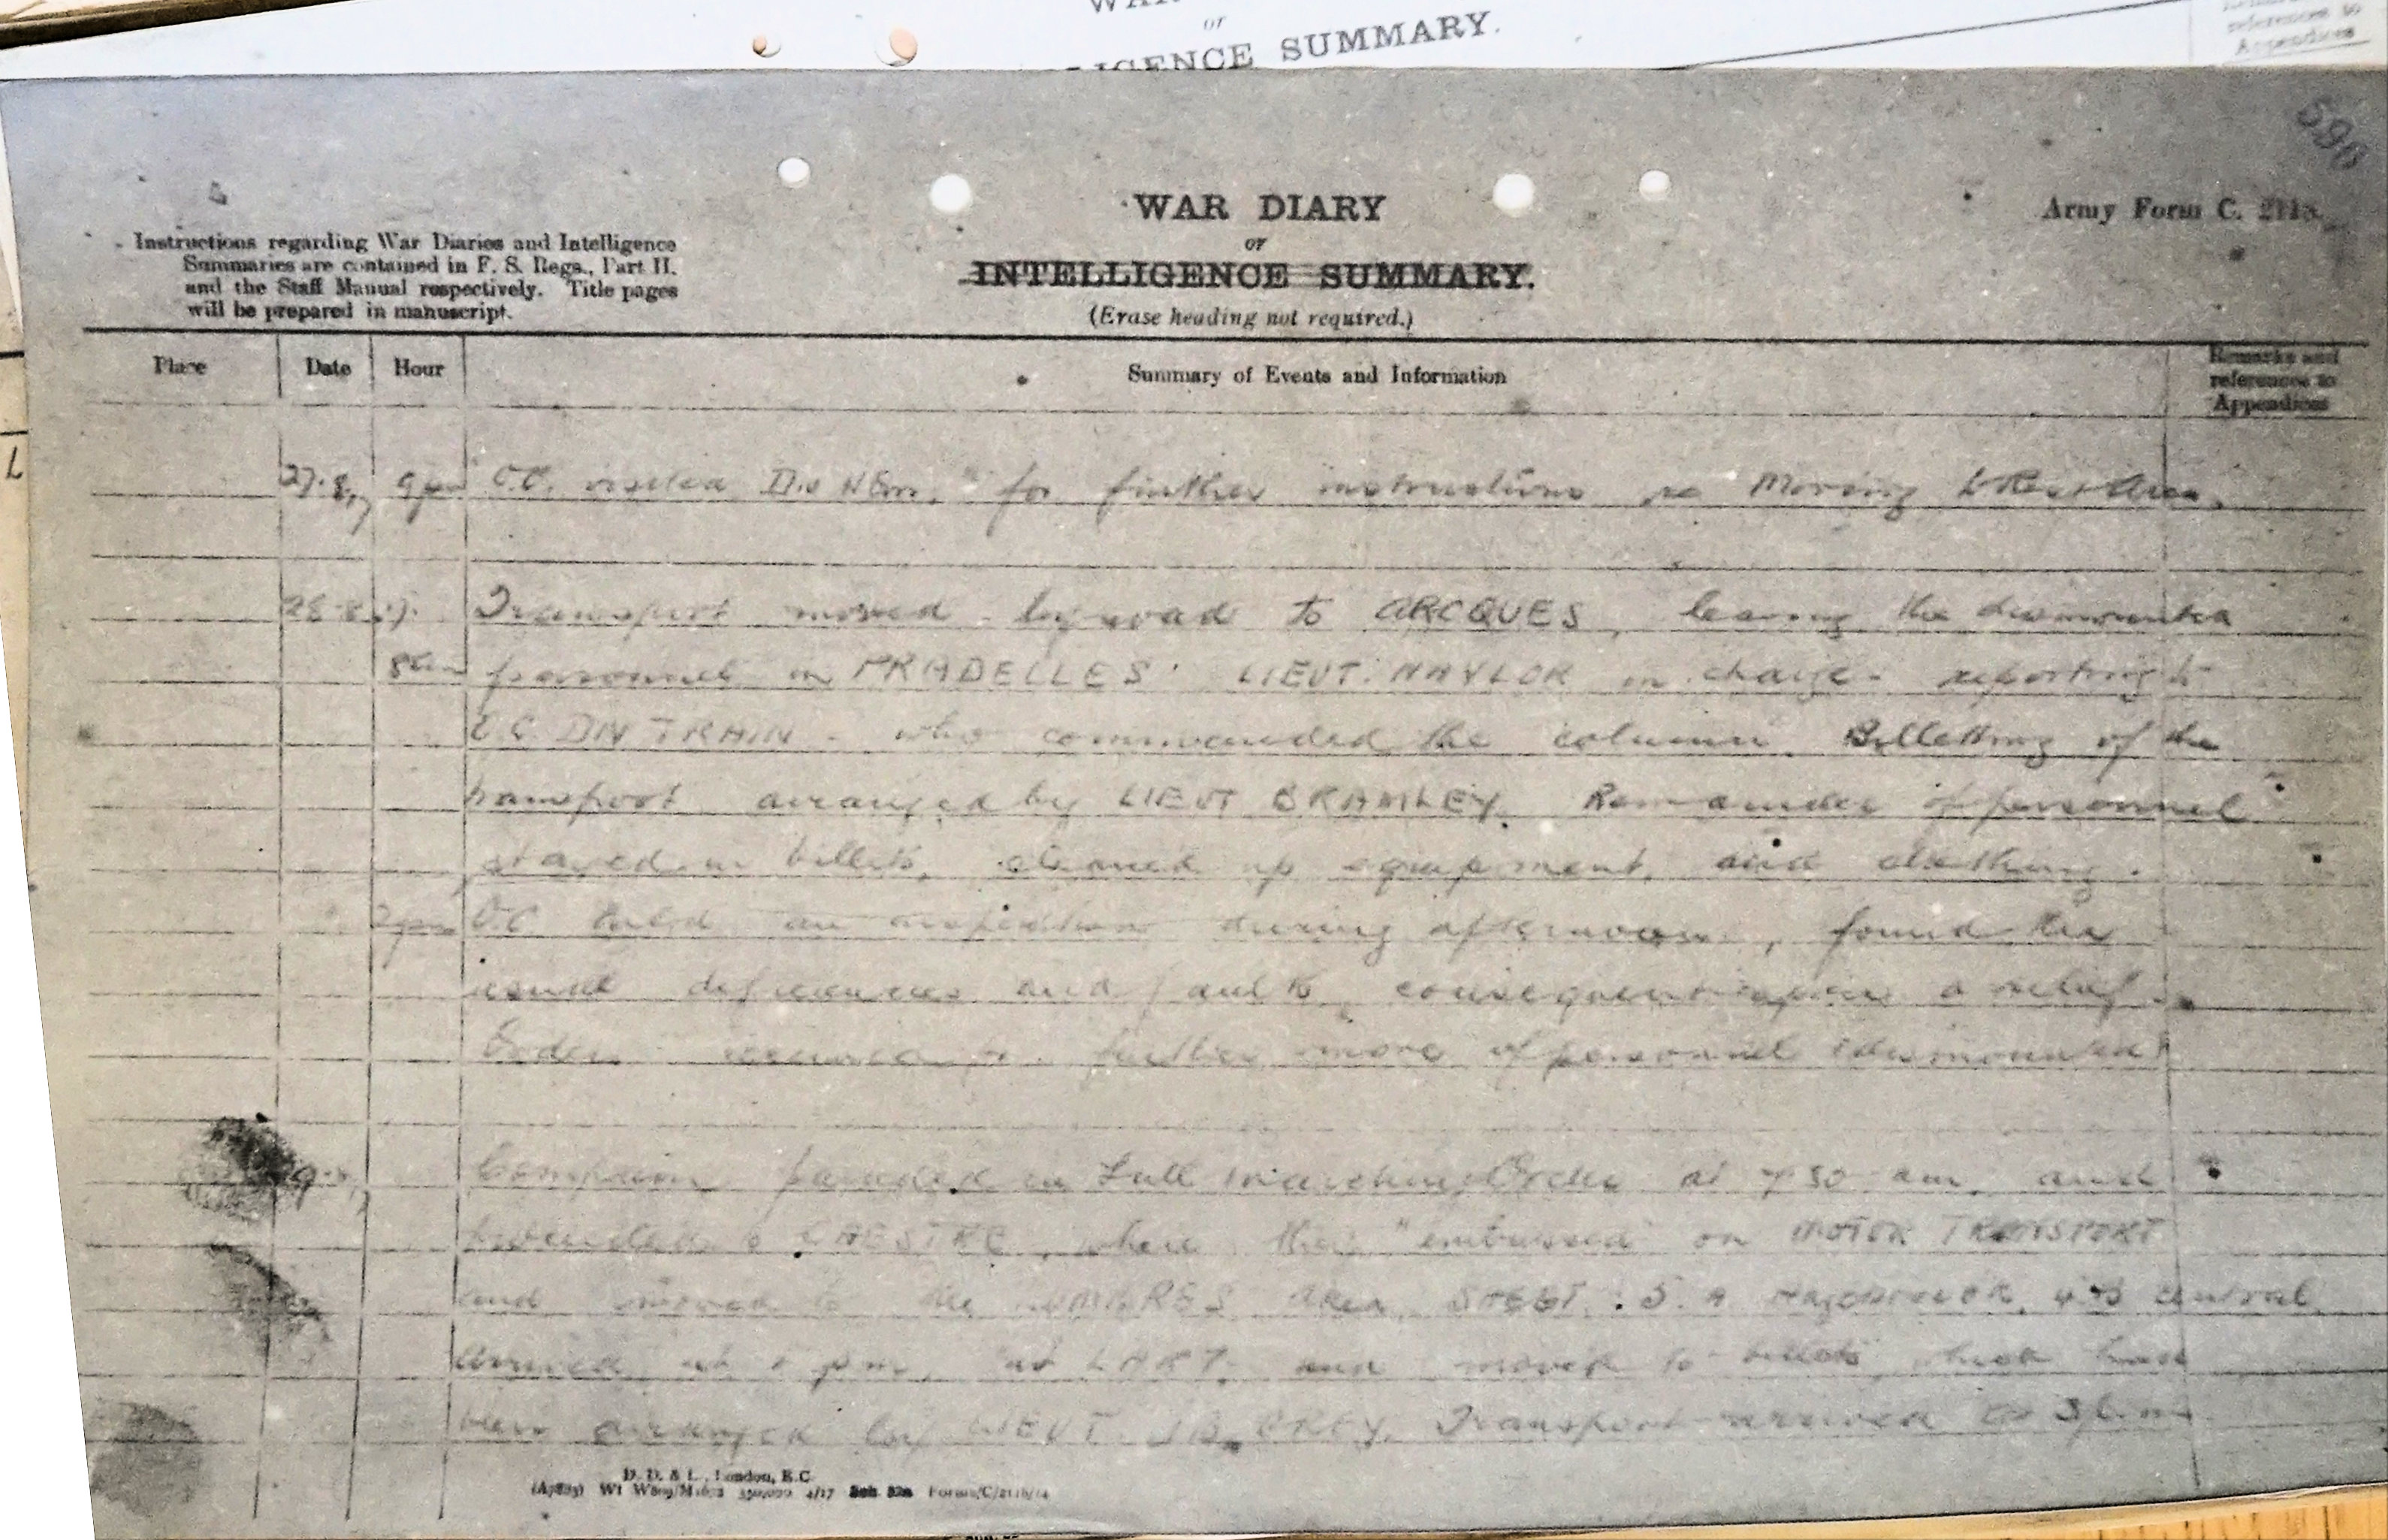 OR
LIGENCE SUMMARY.
references to
Appendices
596
WAR DIARY
or
INTELLIGENCE SUMMARY.
(Erase heading not required.)
Army Form C. 2118.
Instructions regarding War Diaries and Intelligence
Summaries are contained in F. S. Regs., Part II.
and the Staff Manual respectively. Title pages
will be prepared in manuscript.
Place
Date
Hour
Summary of Events and Information
Remarks and
references to
Appendices
27.8.17 9pm O.C. visited for further instructions re Moving to Rest Area.
28.8.17. Transport moved by road to ARCQUES, leaving the dismounted
8am personnel in PRADELLES. LIEUT. NAYLOR in charge - reporting to
O.C. DIV TRAIN - who commanded the column. Billetting of the
transport arranged by LIEUT BRAMLEY. Remainder of personnel
stayed in billets, cleaned up equipment, and clothing.
2pm O.C. held an inspection during afternoon, found the
usual deficiencies and faults, consequent upon a relief.
Orders received re further move of personnel (dismounted)
Company paraded in Full Marching Order at 7 30 am. and
proceeded to CAESTRE, where they "embussed" on MOTOR TRANSPORT
and moved to the LUMBRES area SHEET 5.A HAZEBROUCK. central
arrived at pm. at and moved to billets which had
been arranged by LIEUT. Transport arrived at 3 p.m.
D. D. & L., London, E.C.
4/17 Sch 52a Forms/C/2118/14